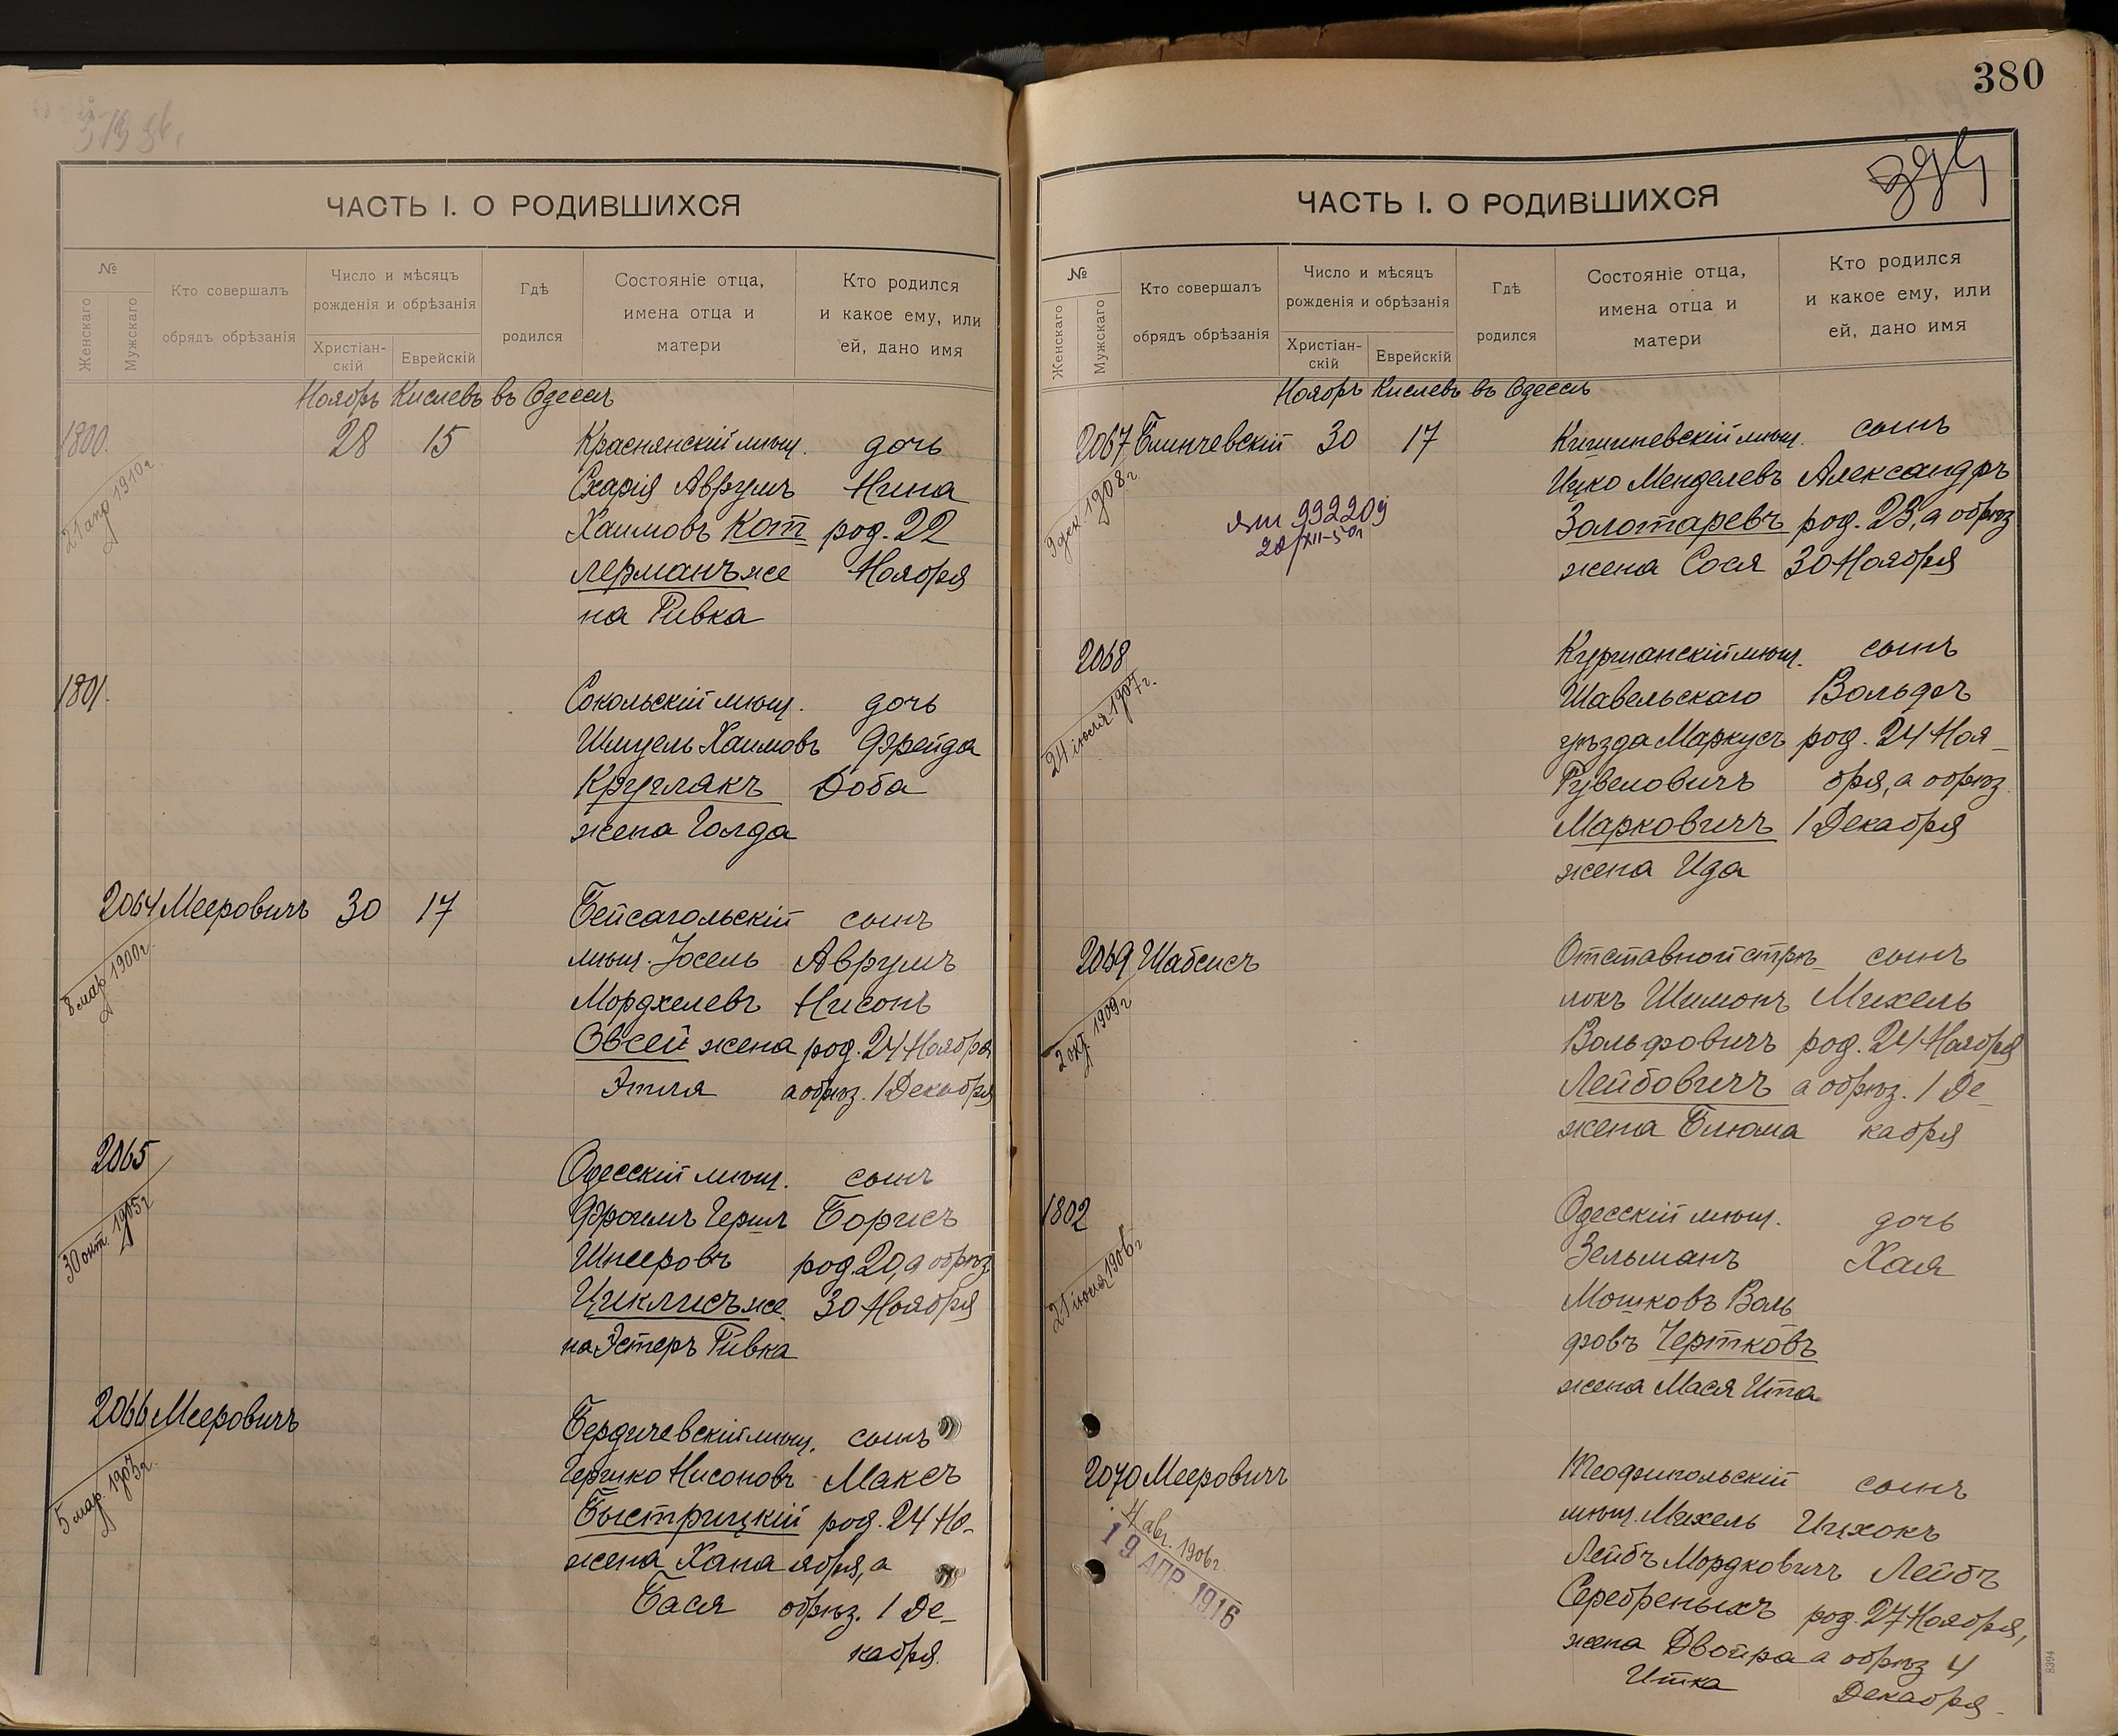 380
ЧАСТЬ I. О РОДИВШИХСЯ
№
Женскаго
Мужскаго
Кто совершалъ
обрядъ обрѣзанія
Число и мѣсяцъ
рожденія и обрѣзанія
Христіан-
скій
Еврейскій
Гдѣ
родился
Состояніе отца,
имена отца и
матери
Кто родился
и какое ему, или
ей, дано имя
Ноябрь Кислевъ въ Одессѣ
1800. 28 15 Краснянскій мѣщ. дочь
21 апр 1910 г
Схарія Аврумъ Нина
Хаимовъ Кот род. 22
лерманъ же Ноября
на Ривка
1801. Сокольскій мѣщ. дочь
Шмуель Хаимовъ Фрейда
Круглякъ Боба
жена Голда
2064 Мееровичъ 30 17 Бейсагольскій сынъ
8 мар 1900 г.
мѣщ. Іосель Аврумъ
Мордхелевъ Нисонъ
Овсей жена род. 24 Ноября
Этля а обрѣз. 1 Декабря
2065 Одесскій мѣщ. сынъ
30 окт. 1905 г
Фроимъ Гершъ Борисъ
Шнееровъ род. 20, а обрѣз
Циклисъ же 30 Ноября
на Эстеръ Ривка
2066 Мееровичъ Бердичевскій мѣщ. сынъ
5 мар. 1903 г.
Гершко Нисоновъ Максъ
Быстрицкій род. 24 Но-
жена Хана ября, а
Бася обрѣз. 1 Де-
кабря.
ЧАСТЬ I. О РОДИВШИХСЯ
№
Женскаго
Мужскаго
Кто совершалъ
обрядъ обрѣзанія
Число и мѣсяцъ
рожденія и обрѣзанія
Христіан-
скій
Еврейскій
Гдѣ
родился
Состояніе отца,
имена отца и
матери
Кто родился
и какое ему, или
ей, дано имя
Ноябрь Кислевъ въ Одессѣ
2067 Блинчевскій 30 17 Кишиневскій мѣщ. сынъ
9 дек. 1908 г
Ицко Менделевъ Александръ
992209
Золотаревъ род. 23, а обрѣз
жена Сося 30 Ноября
2068 Куршанскій мѣщ. сынъ
24 іюля 1907 г.
Шавельскаго Вольфъ
уѣзда Маркусъ род. 24 Ноя-
Рувеловичъ бря, а обрѣз.
Марковичъ 1 Декабря
жена Ида
2069 Шабсисъ Отставной стрѣ- сынъ
2 окт 1909 г
локъ Шимонъ Михель
Вольфовичъ род. 24 Ноября
Лейбовичъ а обрѣз. 1 Де-
жена Блюма кабря
1802 Одесскій мѣщ. дочь
21 іюня 1906 г
Зельманъ Хая
Мошковъ Воль
фовъ Чертковъ
жена Мася Ита
2070 Мееровичъ Теофипольскій сынъ
4 авг. 1906 г.
19 АПР. 1916
мѣщ. Михель Ицхокъ
Лейбъ Мордковичъ Лейбъ
Серебреныхъ род. 27 Ноября,
жена Двойра а обрѣз 4
Итка Декабря.
8394